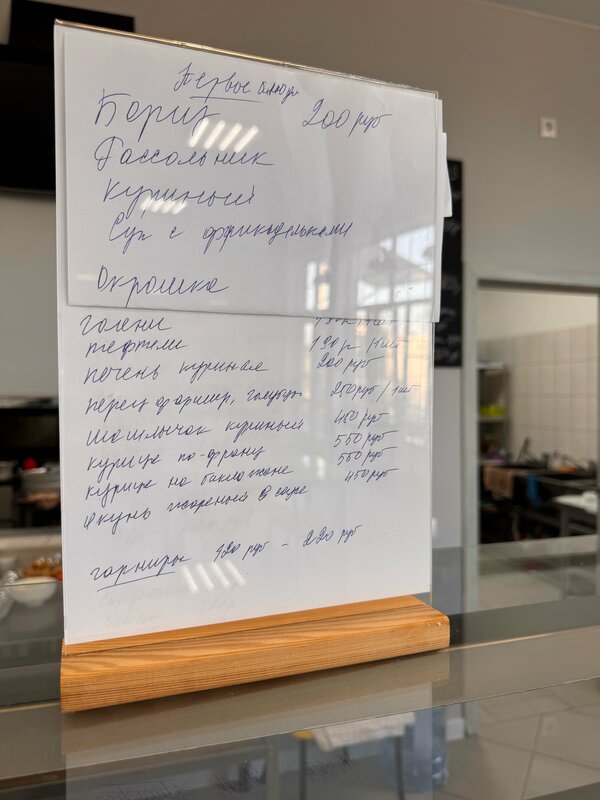 Первое блюдо
Борщ 200 руб
Рассольник
Куриный
Суп с фрикадельками
Окрошка
голени
тефтели 130р/1шт
печень куриная 200 руб
перец фаршир, голубцы 250руб/1шт
шашлычок куриный 450 руб
курица по-франц 550 руб
курица на баклажане 550 руб
окунь жареный в сыре 450 руб
гарниры 120 руб - 220 руб